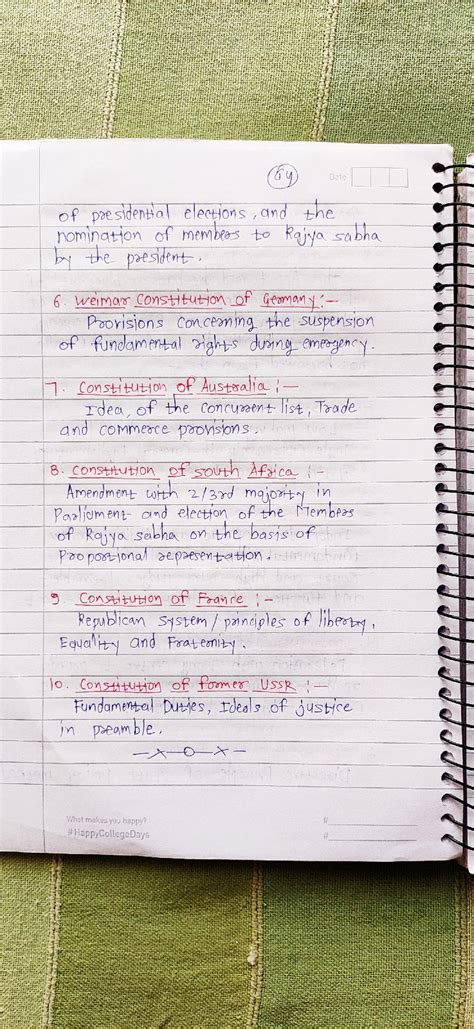 64
Date
of presidential elections, and the
nomination of members to Rajya sabha
by the president.
6. Weimar Constitution of Germany:-
Provisions concerning the suspension
of fundamental rights during emergency.
7. Constitution of Australia:-
Idea, of the concurrent list, Trade
and commerce provisions.
8. Constitution of south Africa :-
Amendment with 2/3rd majority in
Parliament and election of the Members
of Rajya sabha on the basis of
Proportional representation.
9. Constitution of France :-
Republican system/principles of liberty,
Equality and Fraternity.
10. Constitution of former USSR :-
Fundamental Duties, Ideals of justice
in preamble.
—x—o—x—
What makes you happy?
#HappyCollegeDays
#
#